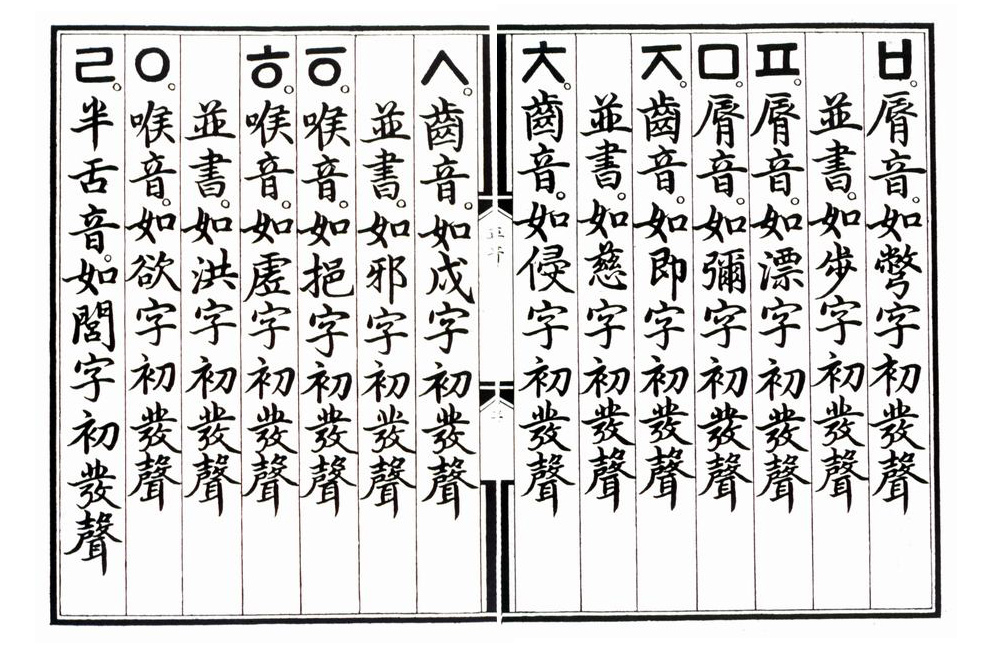 ㅂ。脣音。如彆字初發聲
並書。如步字初發聲
ㅍ。脣音。如漂字初發聲
ㅁ。脣音。如彌字初發聲
ㅈ。齒音。如即字初發聲
並書。如慈字初發聲
ㅊ。齒音。如侵字初發聲
ㅅ。齒音。如戌字初發聲
並書。如邪字初發聲
ㆆ。喉音。如挹字初發聲
ㅎ。喉音。如虛字初發聲
並書。如洪字初發聲
ㅇ。喉音。如欲字初發聲
ㄹ。半舌音。如閭字初發聲